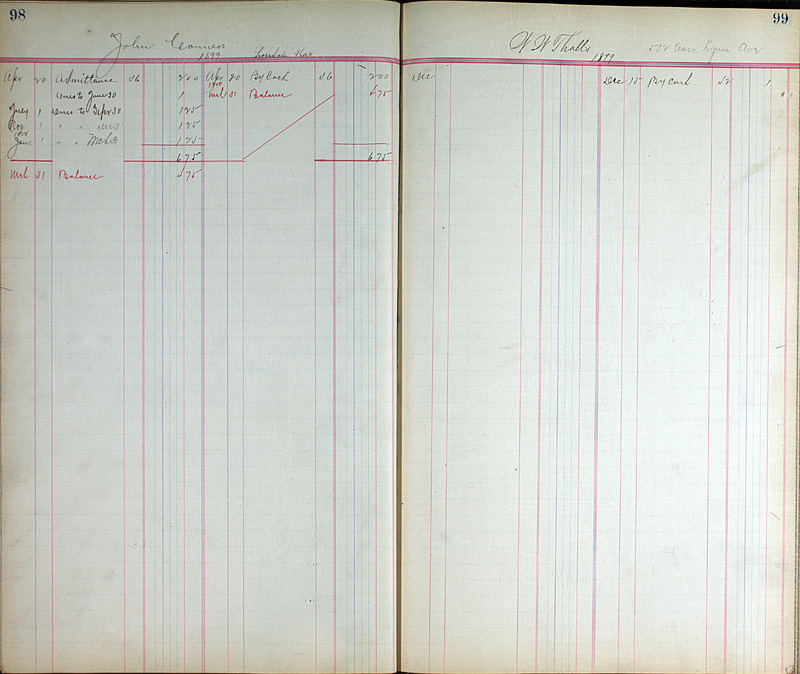 98
John Connors
1899
Apr 20 Admittance 36 200 Apr 20 By Cash 36 200
Dues to June 30 1 1900 Mch 31 Balance 475
July 1 Dues to Sept 30 125
Oct 1 " " Dec 31 125
1900 Jan 1 " " Mch 31 125
675 675
Mch 31 Balance 475
99
W W Thalls Ave
1899
Dec Dec 15 By Cash 52 1